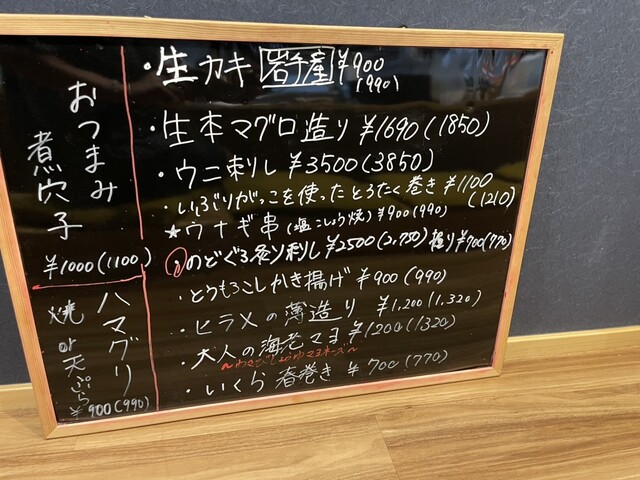 ・生カキ 岩手産 ¥900
(990)
・生本マグロ造り ¥1690(1850)
・ウニ刺し ¥3500(3850)
・いぶりがっこを使ったとろたく巻き ¥1100
(1210)
★ウナギ串(塩こしょう焼)¥900(990)
のどぐろ炙り刺し ¥2500(2,750) 握り¥700(770)
・とうもろこしかき揚げ ¥900(990)
・ヒラメの薄造り ¥1,200(1,320)
・大人の海老マヨ ¥1200(1320)
〜わさびしょうゆマヨネーズ〜
・いくら春巻き ¥700(770)
おつまみ
煮穴子
¥1000(1100)
ハマグリ
焼 or 天ぷら
¥900(990)